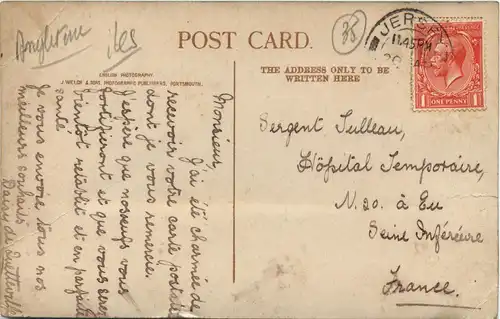 Angleterre
îles
38
POST CARD.
ENGLISH PHOTOGRAPHY
J. WELCH & SONS, PHOTOGRAPHIC PUBLISHERS, PORTSMOUTH.
THE ADDRESS ONLY TO BE
WRITTEN HERE
JERSEY
11.45 PM
ONE PENNY
1 1
Monsieur,
J'ai été charmée de
recevoir votre carte postale
dont je vous remercie.
J'espère que nos œufs vous
fortifieront et que vous serez
bientot retablit et en parfaite
santé
Je vous envoie tous nos
meilleurs souhaits
Daisy de
Sergent Tulleau,
Hôpital Temporaire,
N. 20. à Eu
Seine Inférieure
France.